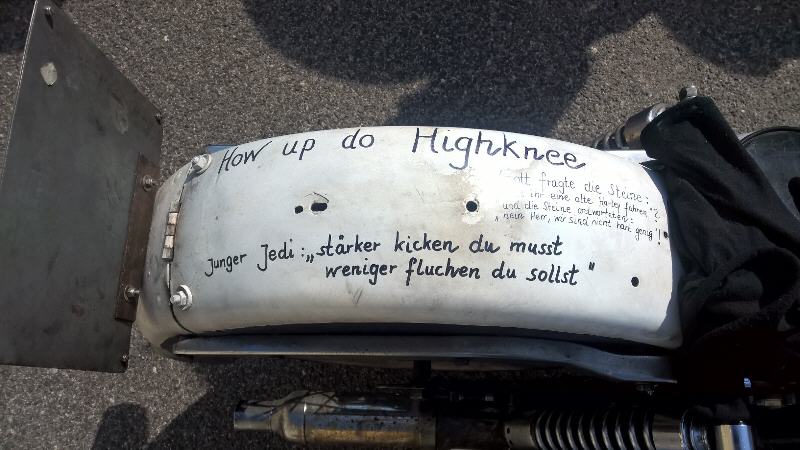 How up do Highknee
Gott fragte die Steine:
ihr eine alte Harley fahren"?
und die Steine antworteten:
"nein Herr, wir sind nicht hart genug"!
Junger Jedi: „stärker kicken du musst
weniger fluchen du sollst"